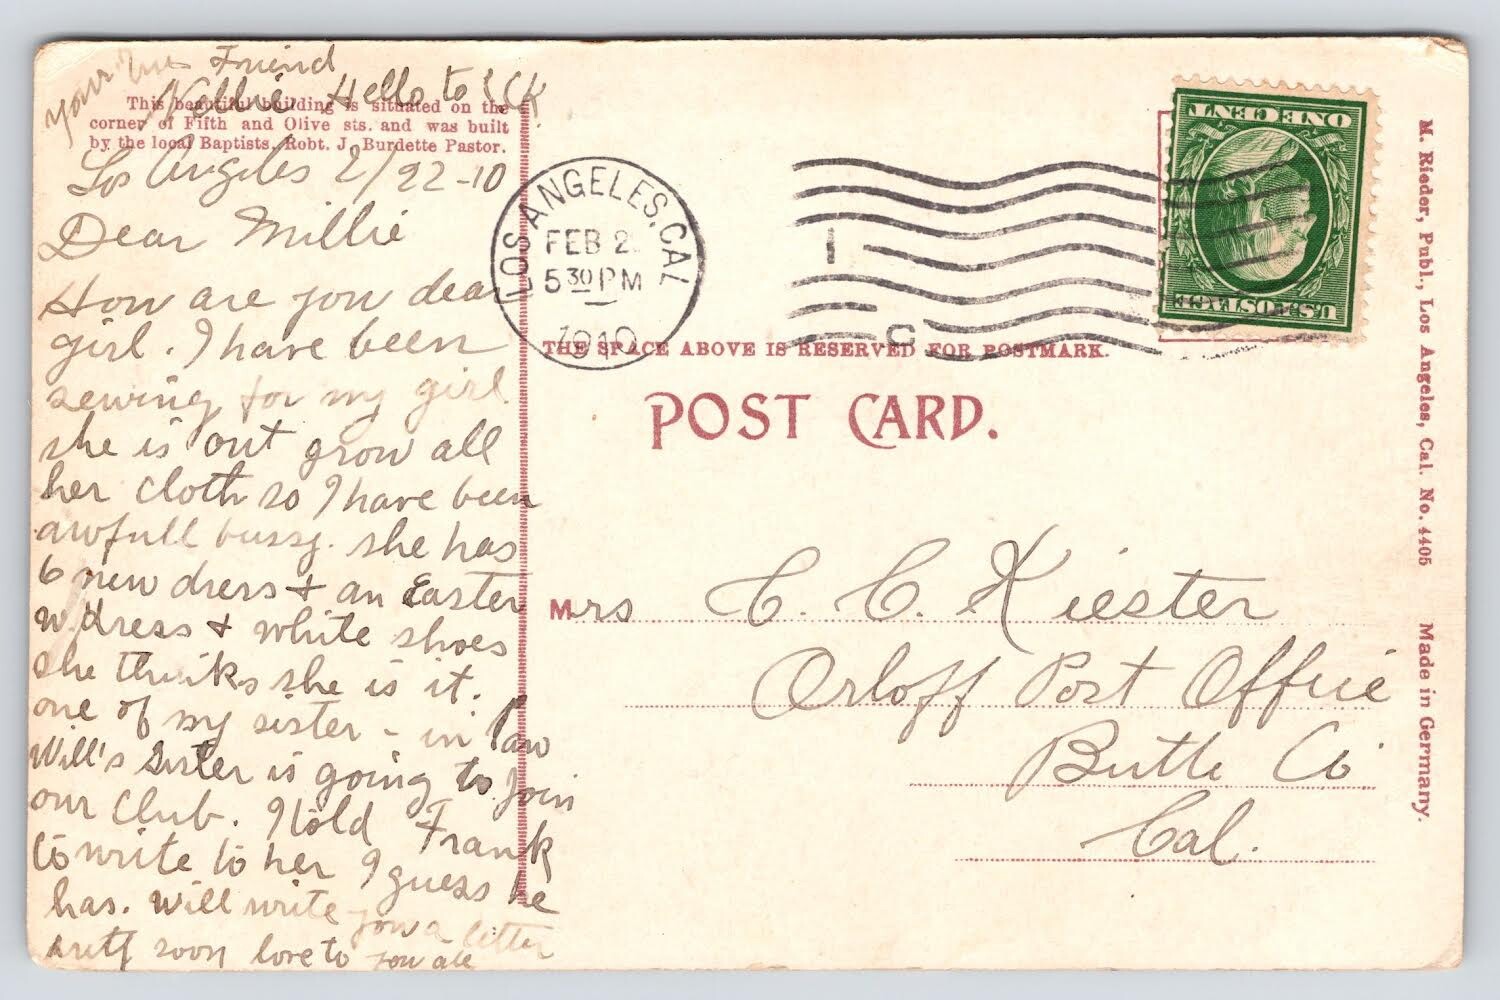 Friend
Nellie Hello to CCK
This beautiful building is situated on the
corner of Fifth and Olive sts. and was built
by the local Baptists. Robt. J. Burdette Pastor.
Los Angeles 2/22-10
Dear Millie
How are you dear
girl. I have been
sewing for my girl
she is out grow all
her cloth so I have been
awfull bussy. she has
6 new dress + an Easter
dress + white shoes
she thinks she is it.
one of my sister - in law
Will's Sister is going to join
our Club. I told Frank
to write to her I guess he
has. Will write you a letter
soon love to you all
LOS ANGELES, CAL
FEB 2
5 30 PM
1910
1
C
ONE CENT
U.S. POSTAGE
THE SPACE ABOVE IS RESERVED FOR POSTMARK.
POST CARD.
Mrs C. C. Kiester
Orloff Post Office
Butte Co
Cal.
M. Rieder, Publ., Los Angeles, Cal. No. 4405 Made in Germany.